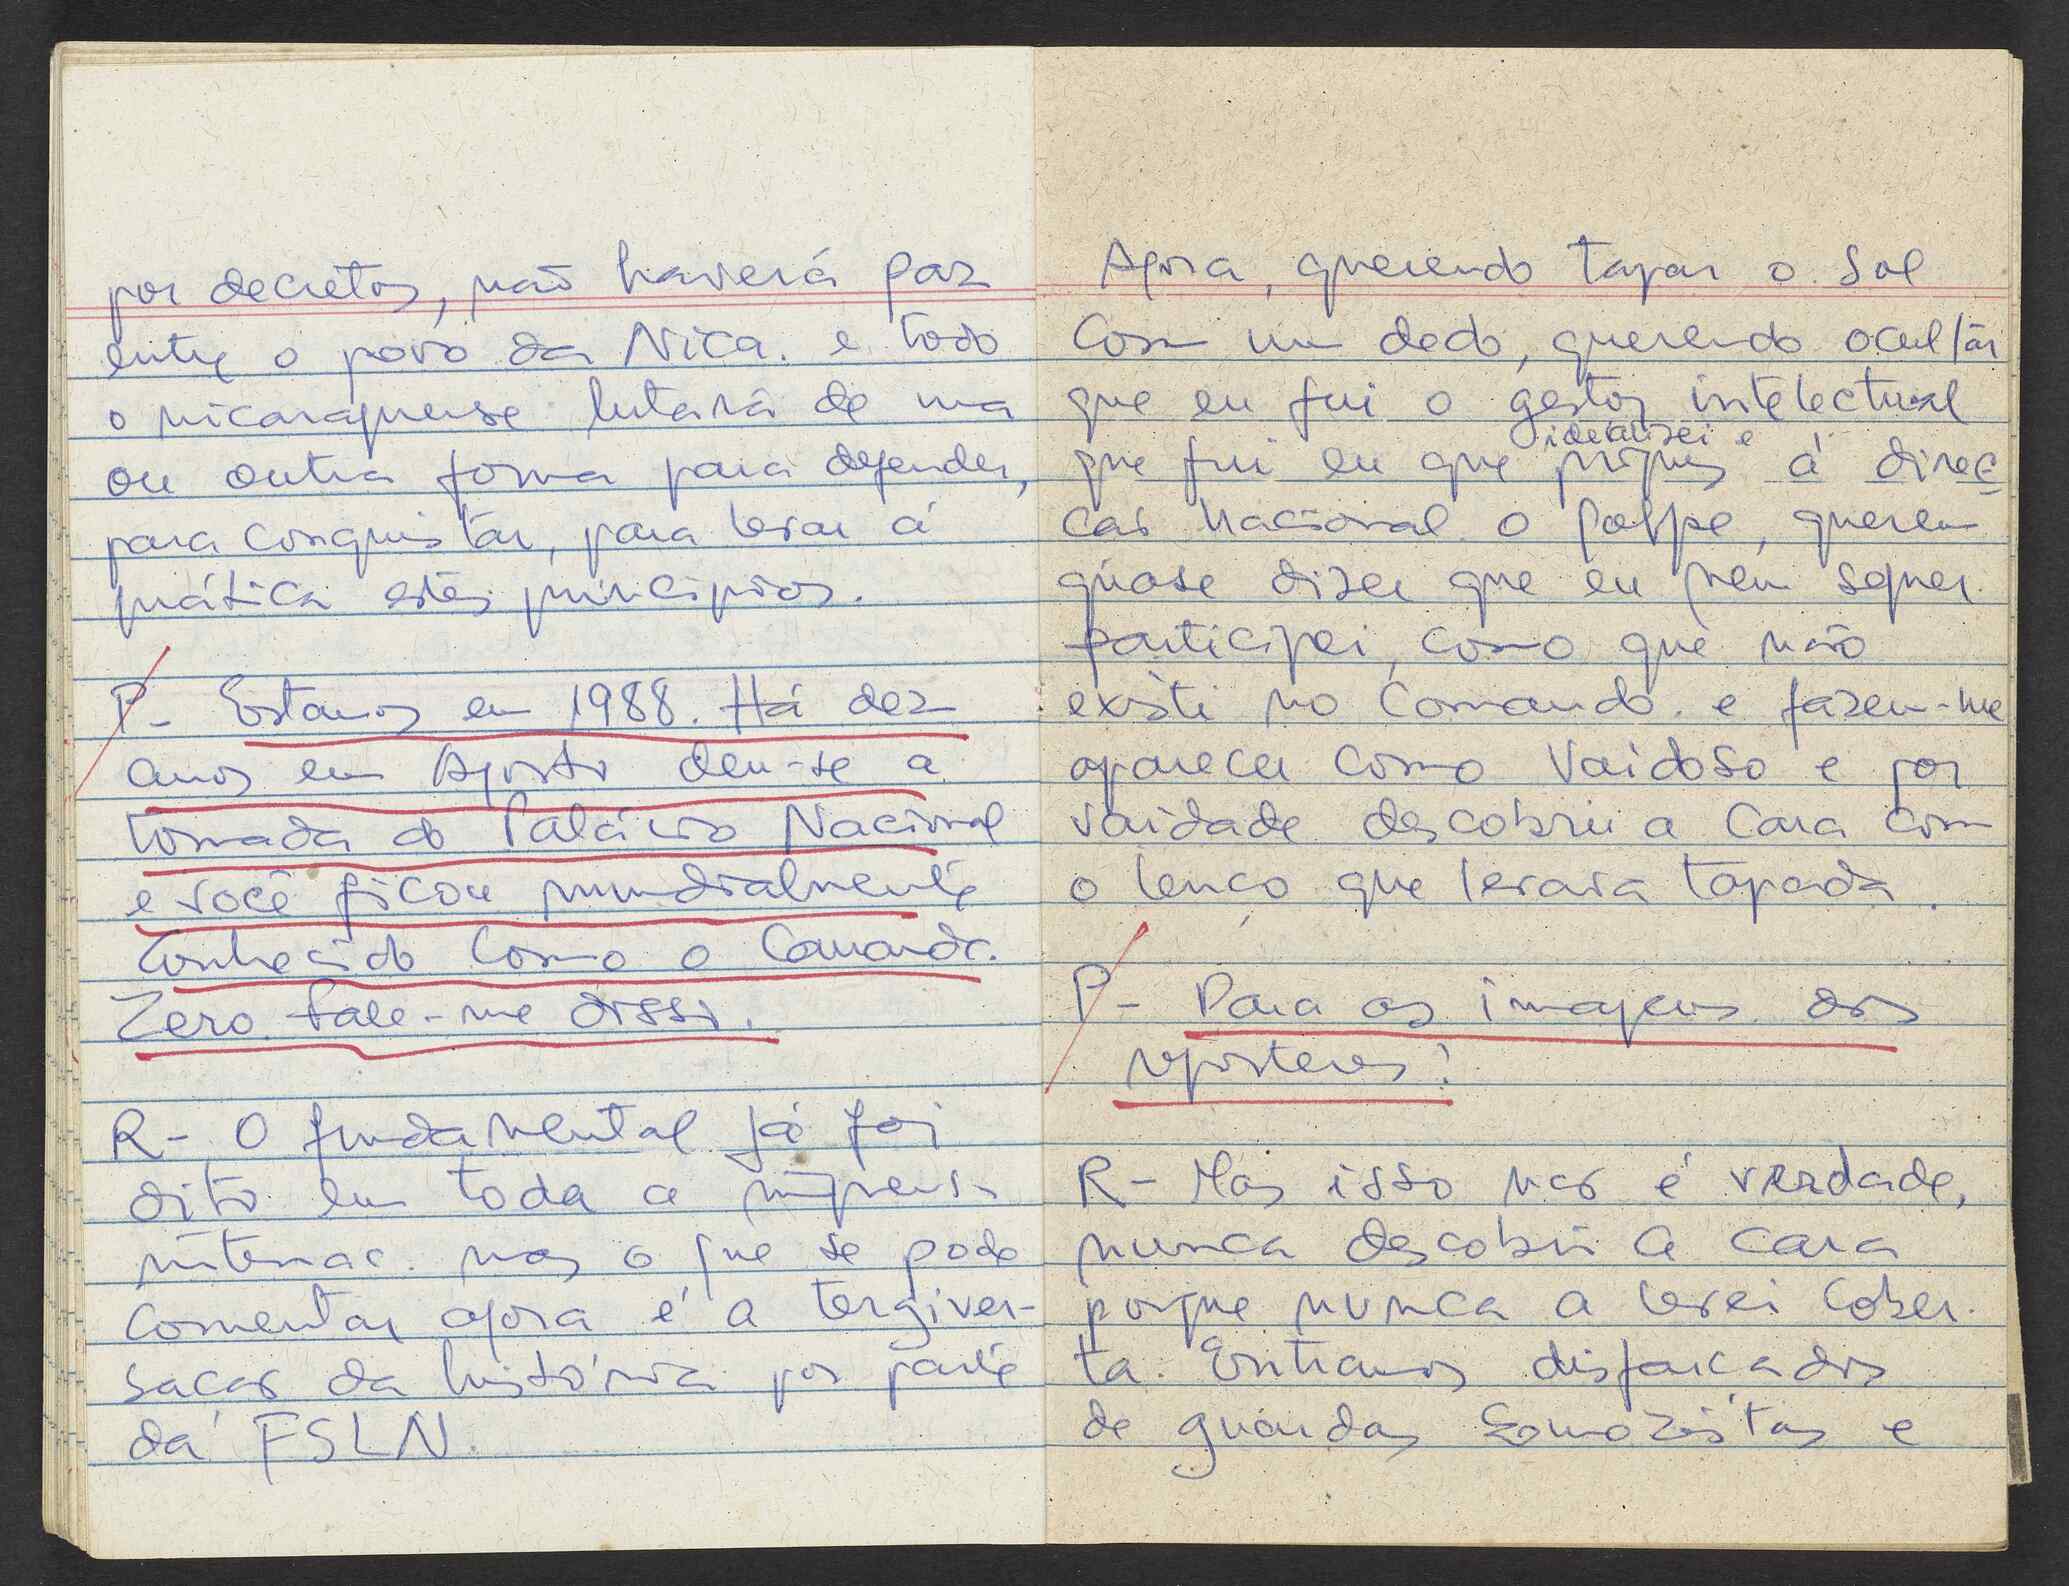 por decretos, não haverá paz
entre o povo da Nica. e todo
o nicaraguense lutará de uma
ou outra forma para defender,
para conquistar, para levar á
prática estes princípios.
P- Estamos em 1988. Há dez
anos em Agosto deu-se a
tomada do Palácio Nacional
e você ficou mundialmente
conhecido como o Comand.
Zero. Fale-me disso.
R- O fundamental já foi
dito em toda a imprensa
internac. mas o que se pode
comentar agora é a tergiver-
sação da história por parte
da FSLN.
Agora, querendo tapar o sol
com um dedo, querendo ocultar
que eu fui o gestor intelectual
idealizei e
que fui eu que propus á direc
ção nacional o golpe, querem
quase dizer que eu nem sequer
participei, como que não
existi no Comando. e fazem-me
aparecer como vaidoso e por
vaidade descobri a cara com
o lenço que levava tapada.
P- Para as imagens dos
reporteres?
R- Mas isso não é verdade,
nunca descobri a cara
porque nunca a levei cober-
ta. Entramos disfarçados
de guardas somozistas e